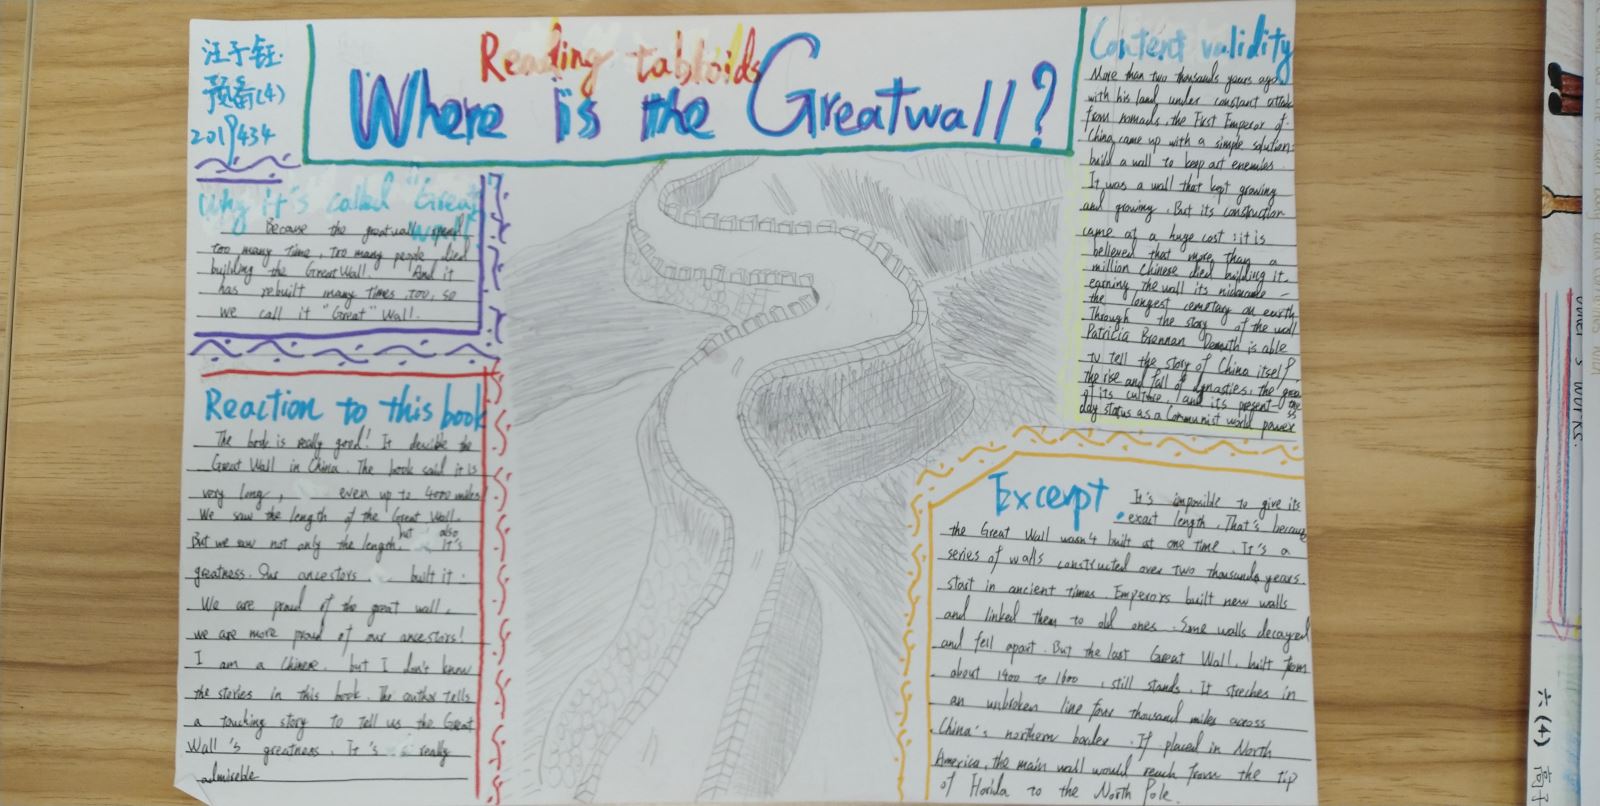 汪于钰.
预备(4)
2019434
Reading tabloids
Where is the Greatwall?
Why it's called "Great
Wall"
Because the greatwall spend
too many time, too many people died
building the Great Wall. And it
has rebuilt many times, too, so
we call it "Great" Wall.
Reaction to this book
The book is really good! It decible the
Great Wall in China. The book said it is
very long, even up to 4000 miles
We saw the length of the Great Wall.
But we saw not only the length, but also it's
greatness. Our ancestors built it.
We are proud of the great wall,
we are more proud of our ancestors!
I am a Chinese. but I don't know
the stories in this book. The author tells
a touching story to tell us the Great
Wall's greatness. It's really
admireble
Content validity
More than two thousands years ago,
with his land under constant attack
from nomads, the First Emperor of
China came up with a simple solution:
build a wall to keep out enemies.
It was a wall that kept growing
and growing. But its construction
came at a huge cost: it is
believed that more than a
million Chinese died building it,
earning the wall its nickname –
the longest cemetary on earth
Through the story of the wall
Patricia Brennan Demuth is able
to tell the story of China itself,
the rise and fall of dynasties, the grea
of its culture, and its present
day status as a Communist world power
Excerpt.
It's impossible to give its
exact length. That's because
the Great Wall wasn't built at one time. It's a
series of walls constructed over two thousands years.
start in ancient times. Emperors built new walls
and linked them to old ones. Some walls decayed
and fell apart. But the last Great Wall, built from
about 1400 to 1600, still stands. It streches in
an unbroken line four thousand miles across
China's northern border. If placed in North
America, the main wall would reach from the tip
of Florida to the North Pole.
s works.
六(4)